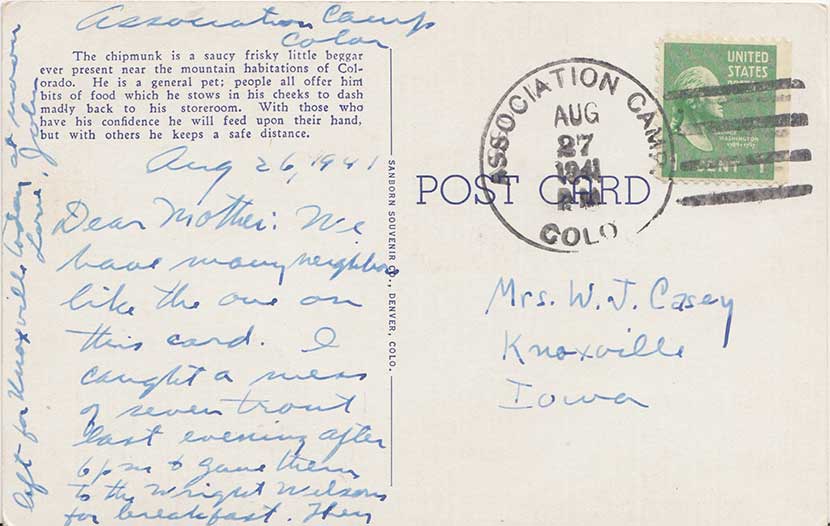 Association Camp
Color
The chipmunk is a saucy frisky little beggar
ever present near the mountain habitations of Col-
orado. He is a general pet; people all offer him
bits of food which he stows in his cheeks to dash
madly back to his storeroom. With those who
have his confidence he will feed upon their hand,
but with others he keeps a safe distance.
Aug 26, 1941
Dear Mother: We
have many neighbors
like the one on
this card. I
caught a mess
of seven trout
last evening after
6 pm & gave them
to the Wright Wilsons
for breakfast. They
left for Knoxville today at noon
Love, John
SANBORN SOUVENIR CO., DENVER, COLO.
POST CARD
ASSOCIATION CAMP
AUG
27
1941
PM
COLO
UNITED
STATES
WASHINGTON
1789-1797
CENT 1
Mrs. W. J. Casey
Knoxville
Iowa